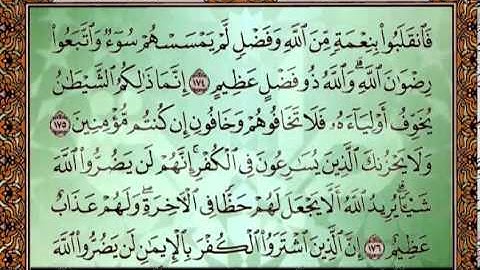 فَٱنقَلَبُوا۟ بِنِعْمَةٍ مِّنَ ٱللَّهِ وَفَضْلٍ لَّمْ يَمْسَسْهُمْ سُوٓءٌ وَٱتَّبَعُوا۟
رِضْوَٰنَ ٱللَّهِ ۗ وَٱللَّهُ ذُو فَضْلٍ عَظِيمٍ ١٧٤ إِنَّمَا ذَٰلِكُمُ ٱلشَّيْطَٰنُ
يُخَوِّفُ أَوْلِيَآءَهُۥ فَلَا تَخَافُوهُمْ وَخَافُونِ إِن كُنتُم مُّؤْمِنِينَ ١٧٥
وَلَا يَحْزُنكَ ٱلَّذِينَ يُسَٰرِعُونَ فِى ٱلْكُفْرِ ۚ إِنَّهُمْ لَن يَضُرُّوا۟ ٱللَّهَ
شَيْـًٔا ۗ يُرِيدُ ٱللَّهُ أَلَّا يَجْعَلَ لَهُمْ حَظًّا فِى ٱلْـَٔاخِرَةِ ۖ وَلَهُمْ عَذَابٌ
عَظِيمٌ ١٧٦ إِنَّ ٱلَّذِينَ ٱشْتَرَوُا۟ ٱلْكُفْرَ بِٱلْإِيمَٰنِ لَن يَضُرُّوا۟ ٱللَّهَ